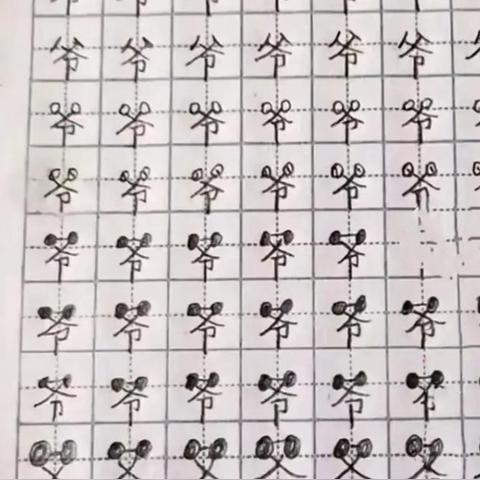 爷爷爷爷爷爷
爷爷爷爷爷爷
爷爷爷爷爷爷
爷爷爷爷爷
爷爷爷爷爷爷
爷爷爷爷爷爷